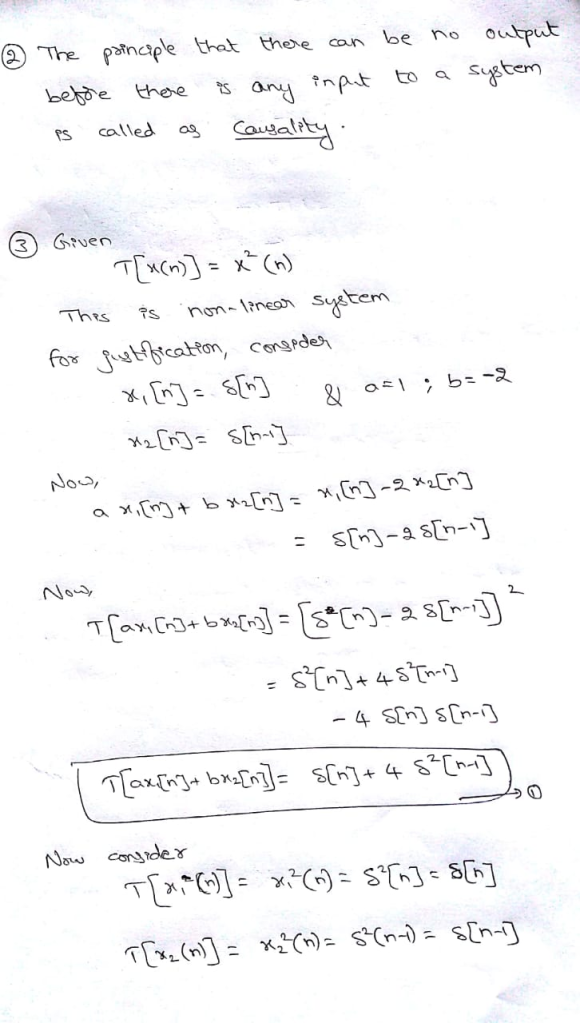 ② The principle that there can be no output
before there is any input to a system
is called as Causality.
③ Given
T[x(n)] = x²(n)
This is non-linear system
for justification, consider
x₁[n] = δ[n] & a=1 ; b=-2
x₂[n] = δ[n-1]
Now,
a x₁[n] + b x₂[n] = x₁[n] - 2 x₂[n]
= δ[n] - 2 δ[n-1]
Now,
T[ax₁[n] + bx₂[n]] = [δ[n] - 2 δ[n-1]]²
= δ²[n] + 4 δ²[n-1]
- 4 δ[n] δ[n-1]
T[ax₁[n] + bx₂[n]] = δ[n] + 4 δ²[n-1] → ①
Now consider
T[x₁(n)] = x₁²(n) = δ²[n] = δ[n]
T[x₂(n)] = x₂²(n) = δ²(n-1) = δ[n-1]